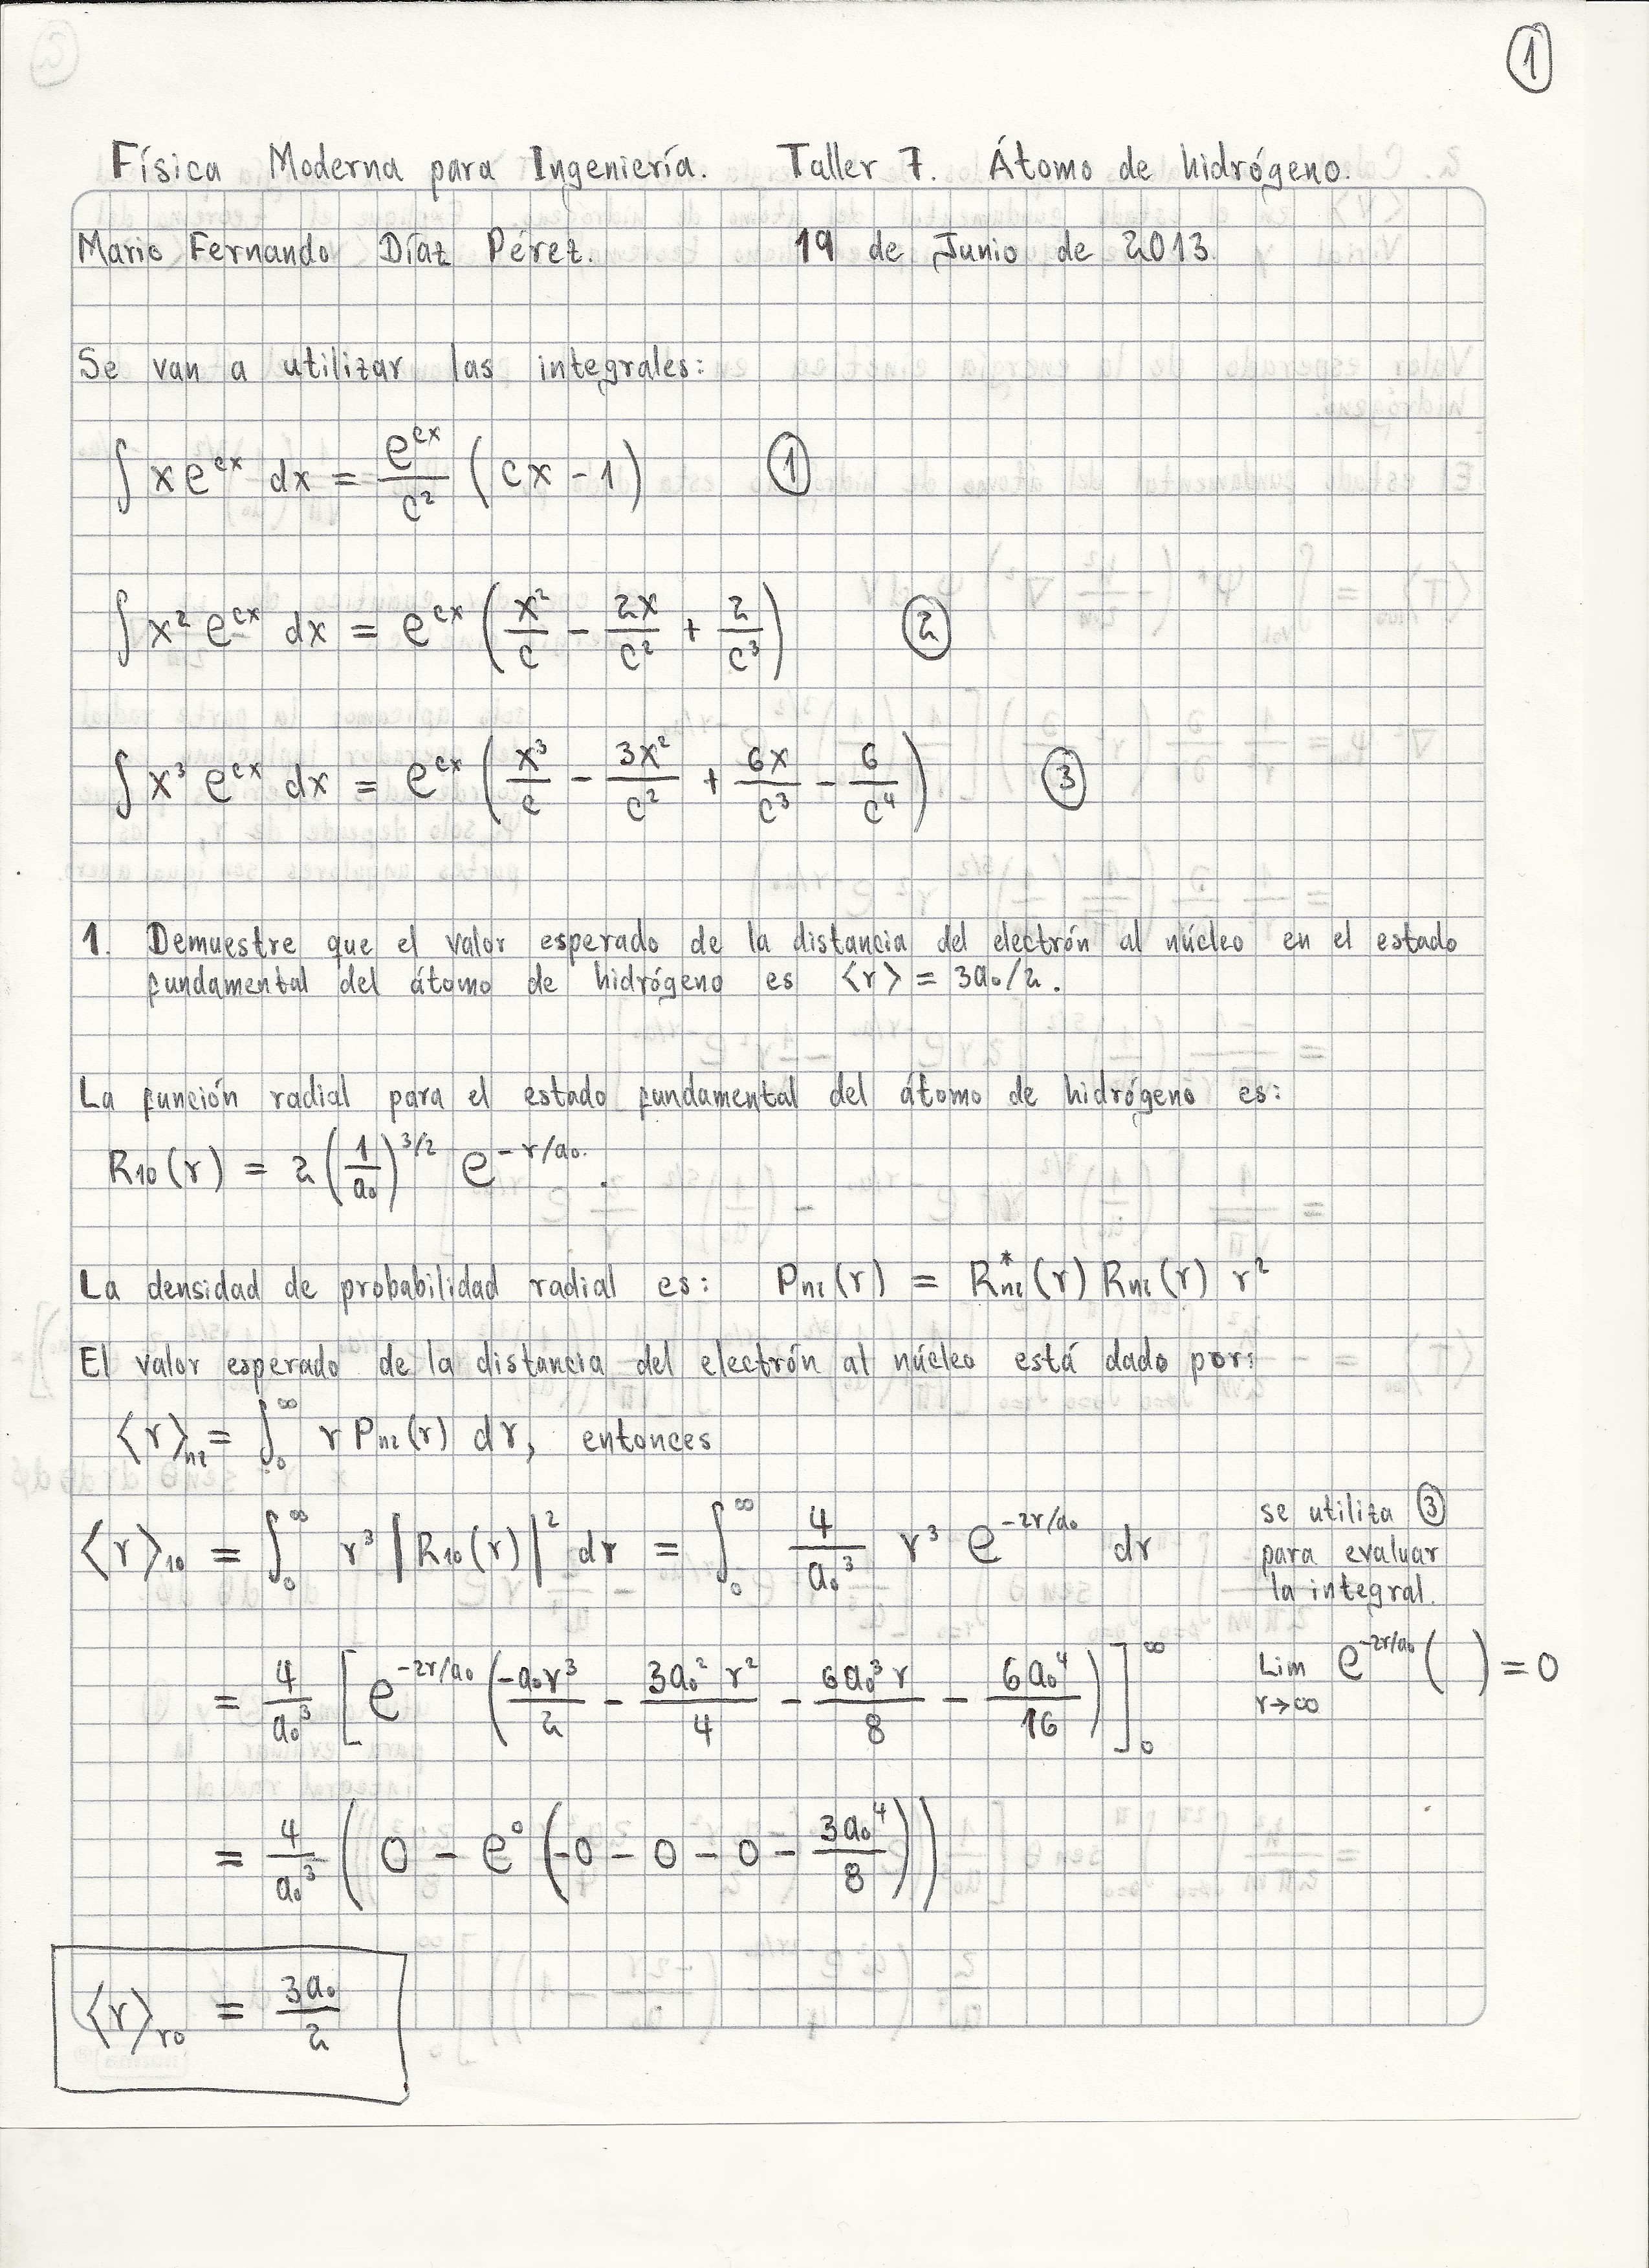 ①
Física Moderna para Ingeniería. Taller 7. Átomo de hidrógeno.
Mario Fernando Díaz Pérez. 19 de Junio de 2013.
Se van a utilizar las integrales:
∫ x e^{cx} dx = \frac{e^{cx}}{c²} (cx - 1) ①
∫ x² e^{cx} dx = e^{cx} (\frac{x²}{c} - \frac{2x}{c²} + \frac{2}{c³}) ②
∫ x³ e^{cx} dx = e^{cx} (\frac{x³}{c} - \frac{3x²}{c²} + \frac{6x}{c³} - \frac{6}{c⁴}) ③
1. Demuestre que el valor esperado de la distancia del electrón al núcleo en el estado
fundamental del átomo de hidrógeno es ⟨r⟩ = 3a₀/2.
La función radial para el estado fundamental del átomo de hidrógeno es:
R₁₀(r) = 2 (\frac{1}{a₀})^{3/2} e^{-r/a₀}.
La densidad de probabilidad radial es: P_{nl}(r) = R*_{nl}(r) R_{nl}(r) r²
El valor esperado de la distancia del electrón al núcleo está dado por:
⟨r⟩_{nl} = ∫_0^∞ r P_{nl}(r) dr, entonces
⟨r⟩₁₀ = ∫_0^∞ r³ |R₁₀(r)|² dr = ∫_0^∞ \frac{4}{a₀³} r³ e^{-2r/a₀} dr
se utiliza ③
para evaluar
la integral.
= \frac{4}{a₀³} [e^{-2r/a₀} (\frac{-a₀r³}{2} - \frac{3a₀² r²}{4} - \frac{6a₀³ r}{8} - \frac{6a₀⁴}{16})]_0^∞ Lim_{r→∞} e^{-2r/a₀} ( ) = 0
= \frac{4}{a₀³} (0 - e⁰ (-0 - 0 - 0 - \frac{3a₀⁴}{8}))
⟨r⟩₁₀ = \frac{3a₀}{2}